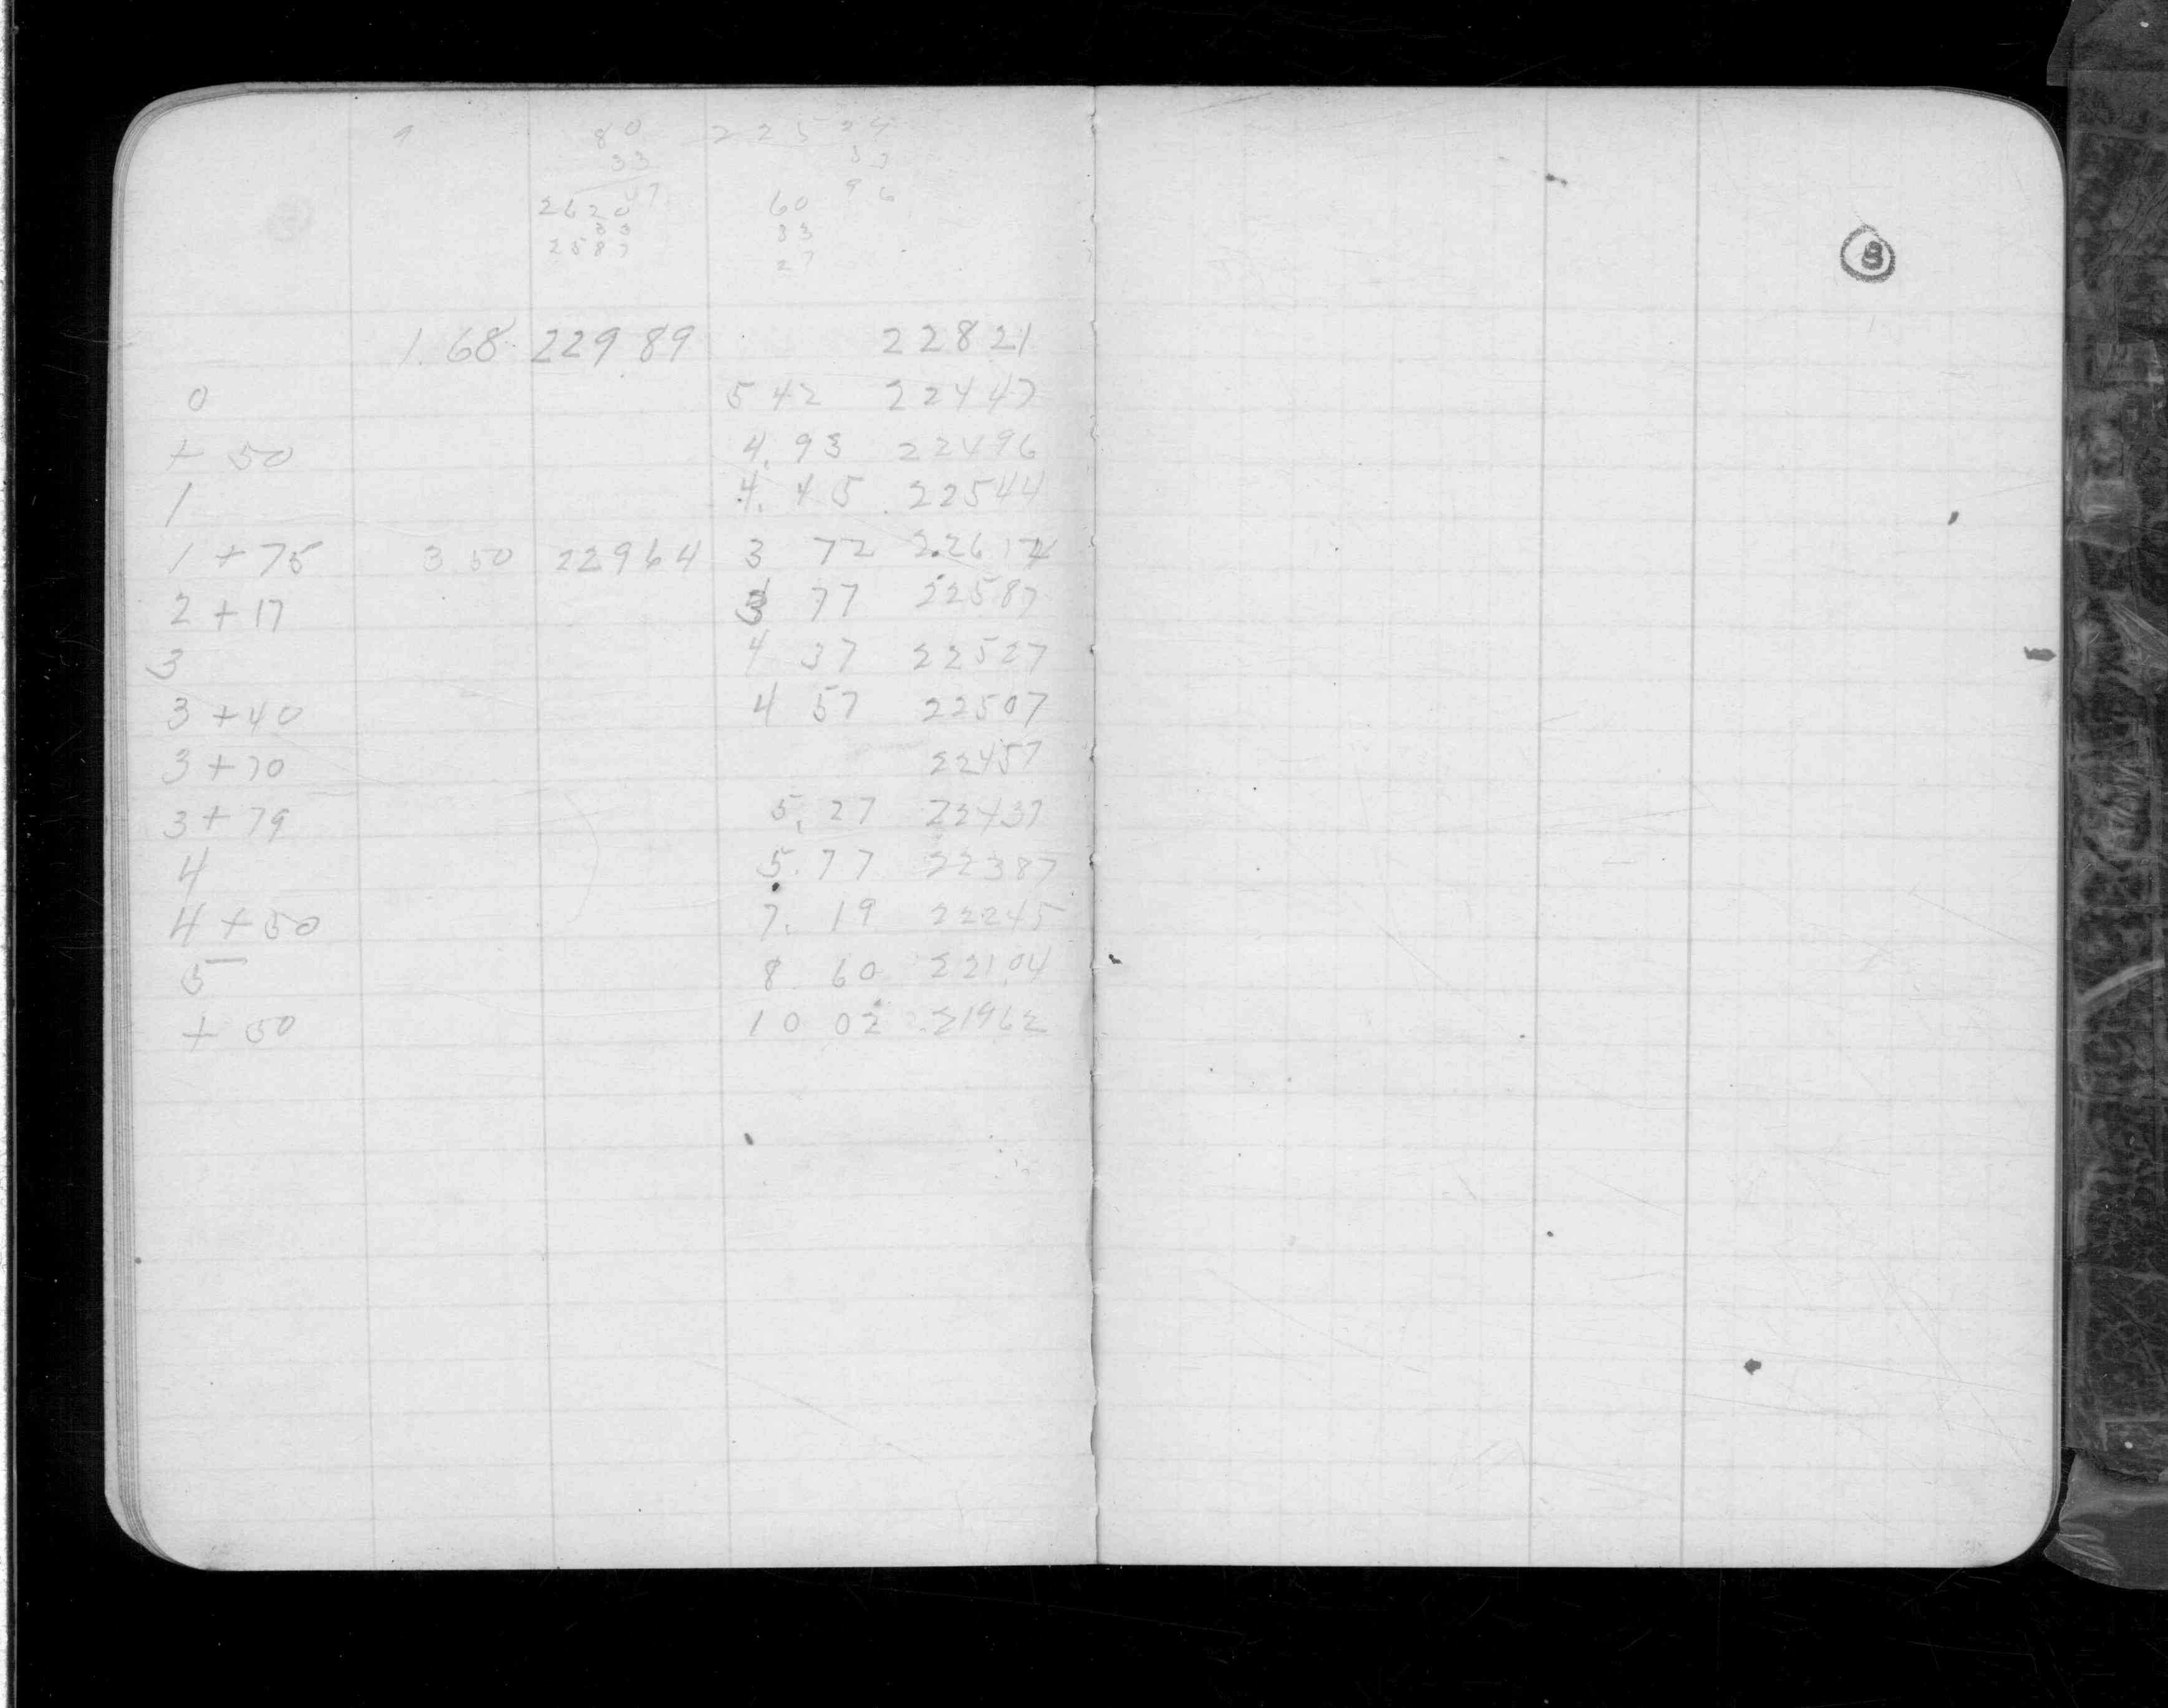 80 22524
33 33
47 96
2620 60
33 33
2587 27
8
1.68 229 89 22821
0 5 42 22447
+ 50 4.93 22496
1 4.45 22544
1 + 75 3 50 22964 3 72 22617
2 + 17 3 77 22587
3 4 37 22527
3 + 40 4 57 22507
3 + 70 22457
3 + 79 5.27 22437
4 5.77 22387
4 + 50 7.19 22245
5 8 60 22104
+ 50 10 02 21962